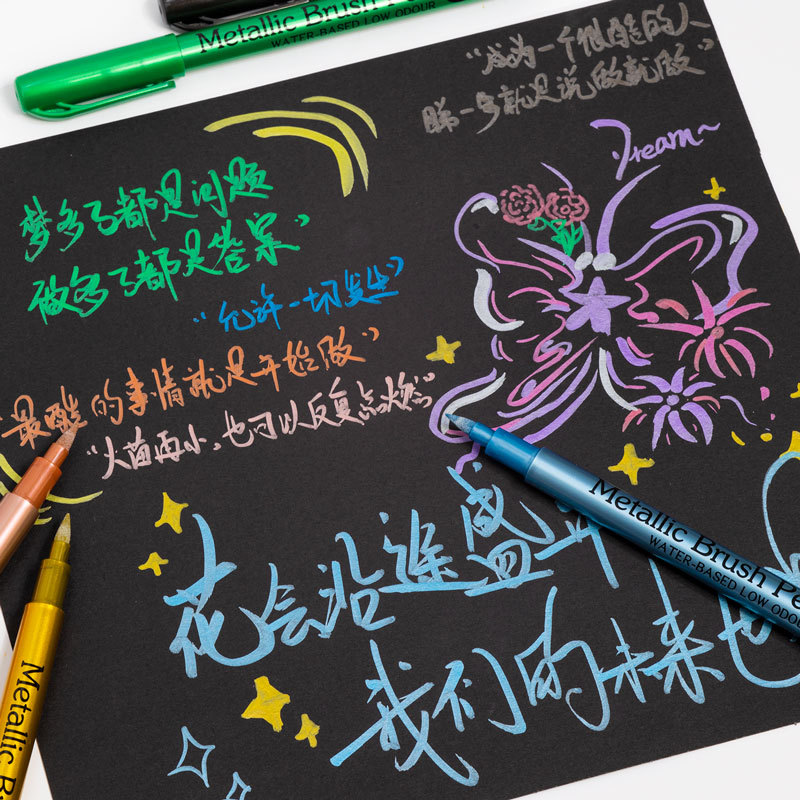 Metallic Brush Pe
WATER-BASED LOW ODOUR
"成为一个很酷的人
第一步就是说做就做"
Dream~
梦多了都是问题
做多了都是答案"
"允许一切发生"
最酷的事情就是开始做"
"火苗再小,也可以反复点燃"
花会沿途盛开
我们的未来也
Metallic Brush Pe
WATER-BASED LOW ODOU
Metallic B